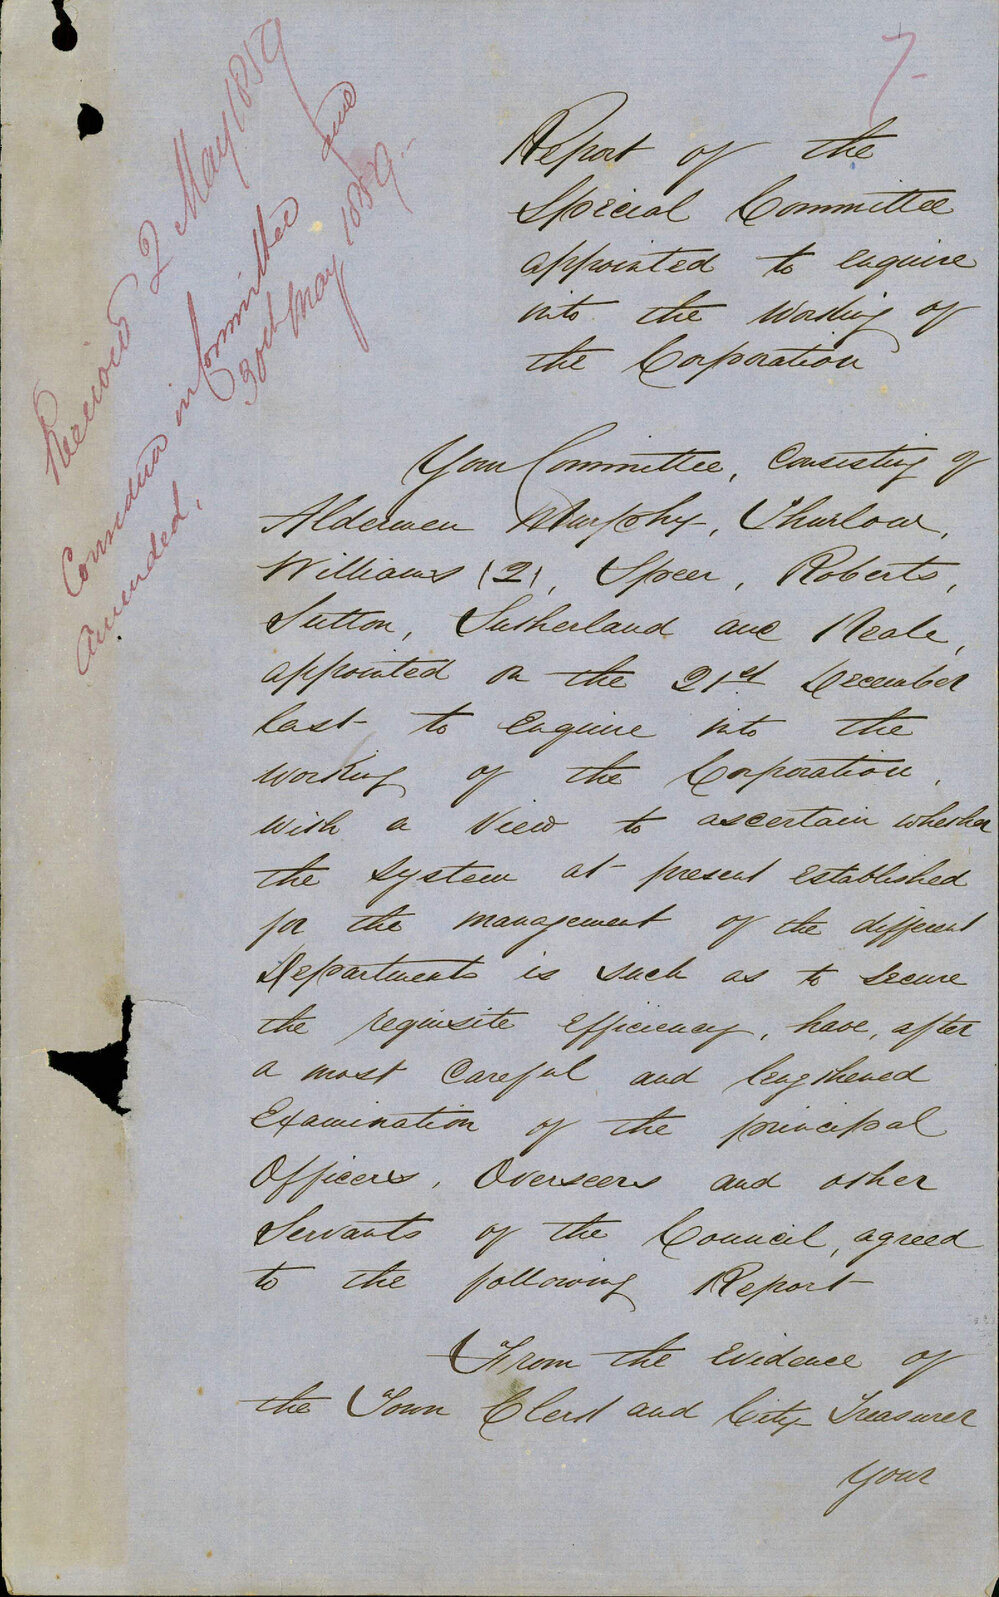 7-
Received 2 May 1859
Considered in Committee and
amended,
30th May 1859-
Report of the
Special Committee
appointed to enquire
into the Working of
the Corporation
Your Committee, Consisting of
Aldermen Murphy, Thurlow,
Williams (2), Speer, Roberts,
Sutton, Sutherland and Neale,
appointed on the 21st December
last to Enquire into the
Working of the Corporation,
with a View to ascertain whether
the system at present Established
for the management of the different
Departments is such as to secure
the requisite Efficiency, have, after
a most Careful and lengthened
Examination of the principal
Officers, Overseers and other
Servants of the Council, agreed
to the following Report
From the Evidence of
the Town Clerk and City Treasurer
Your